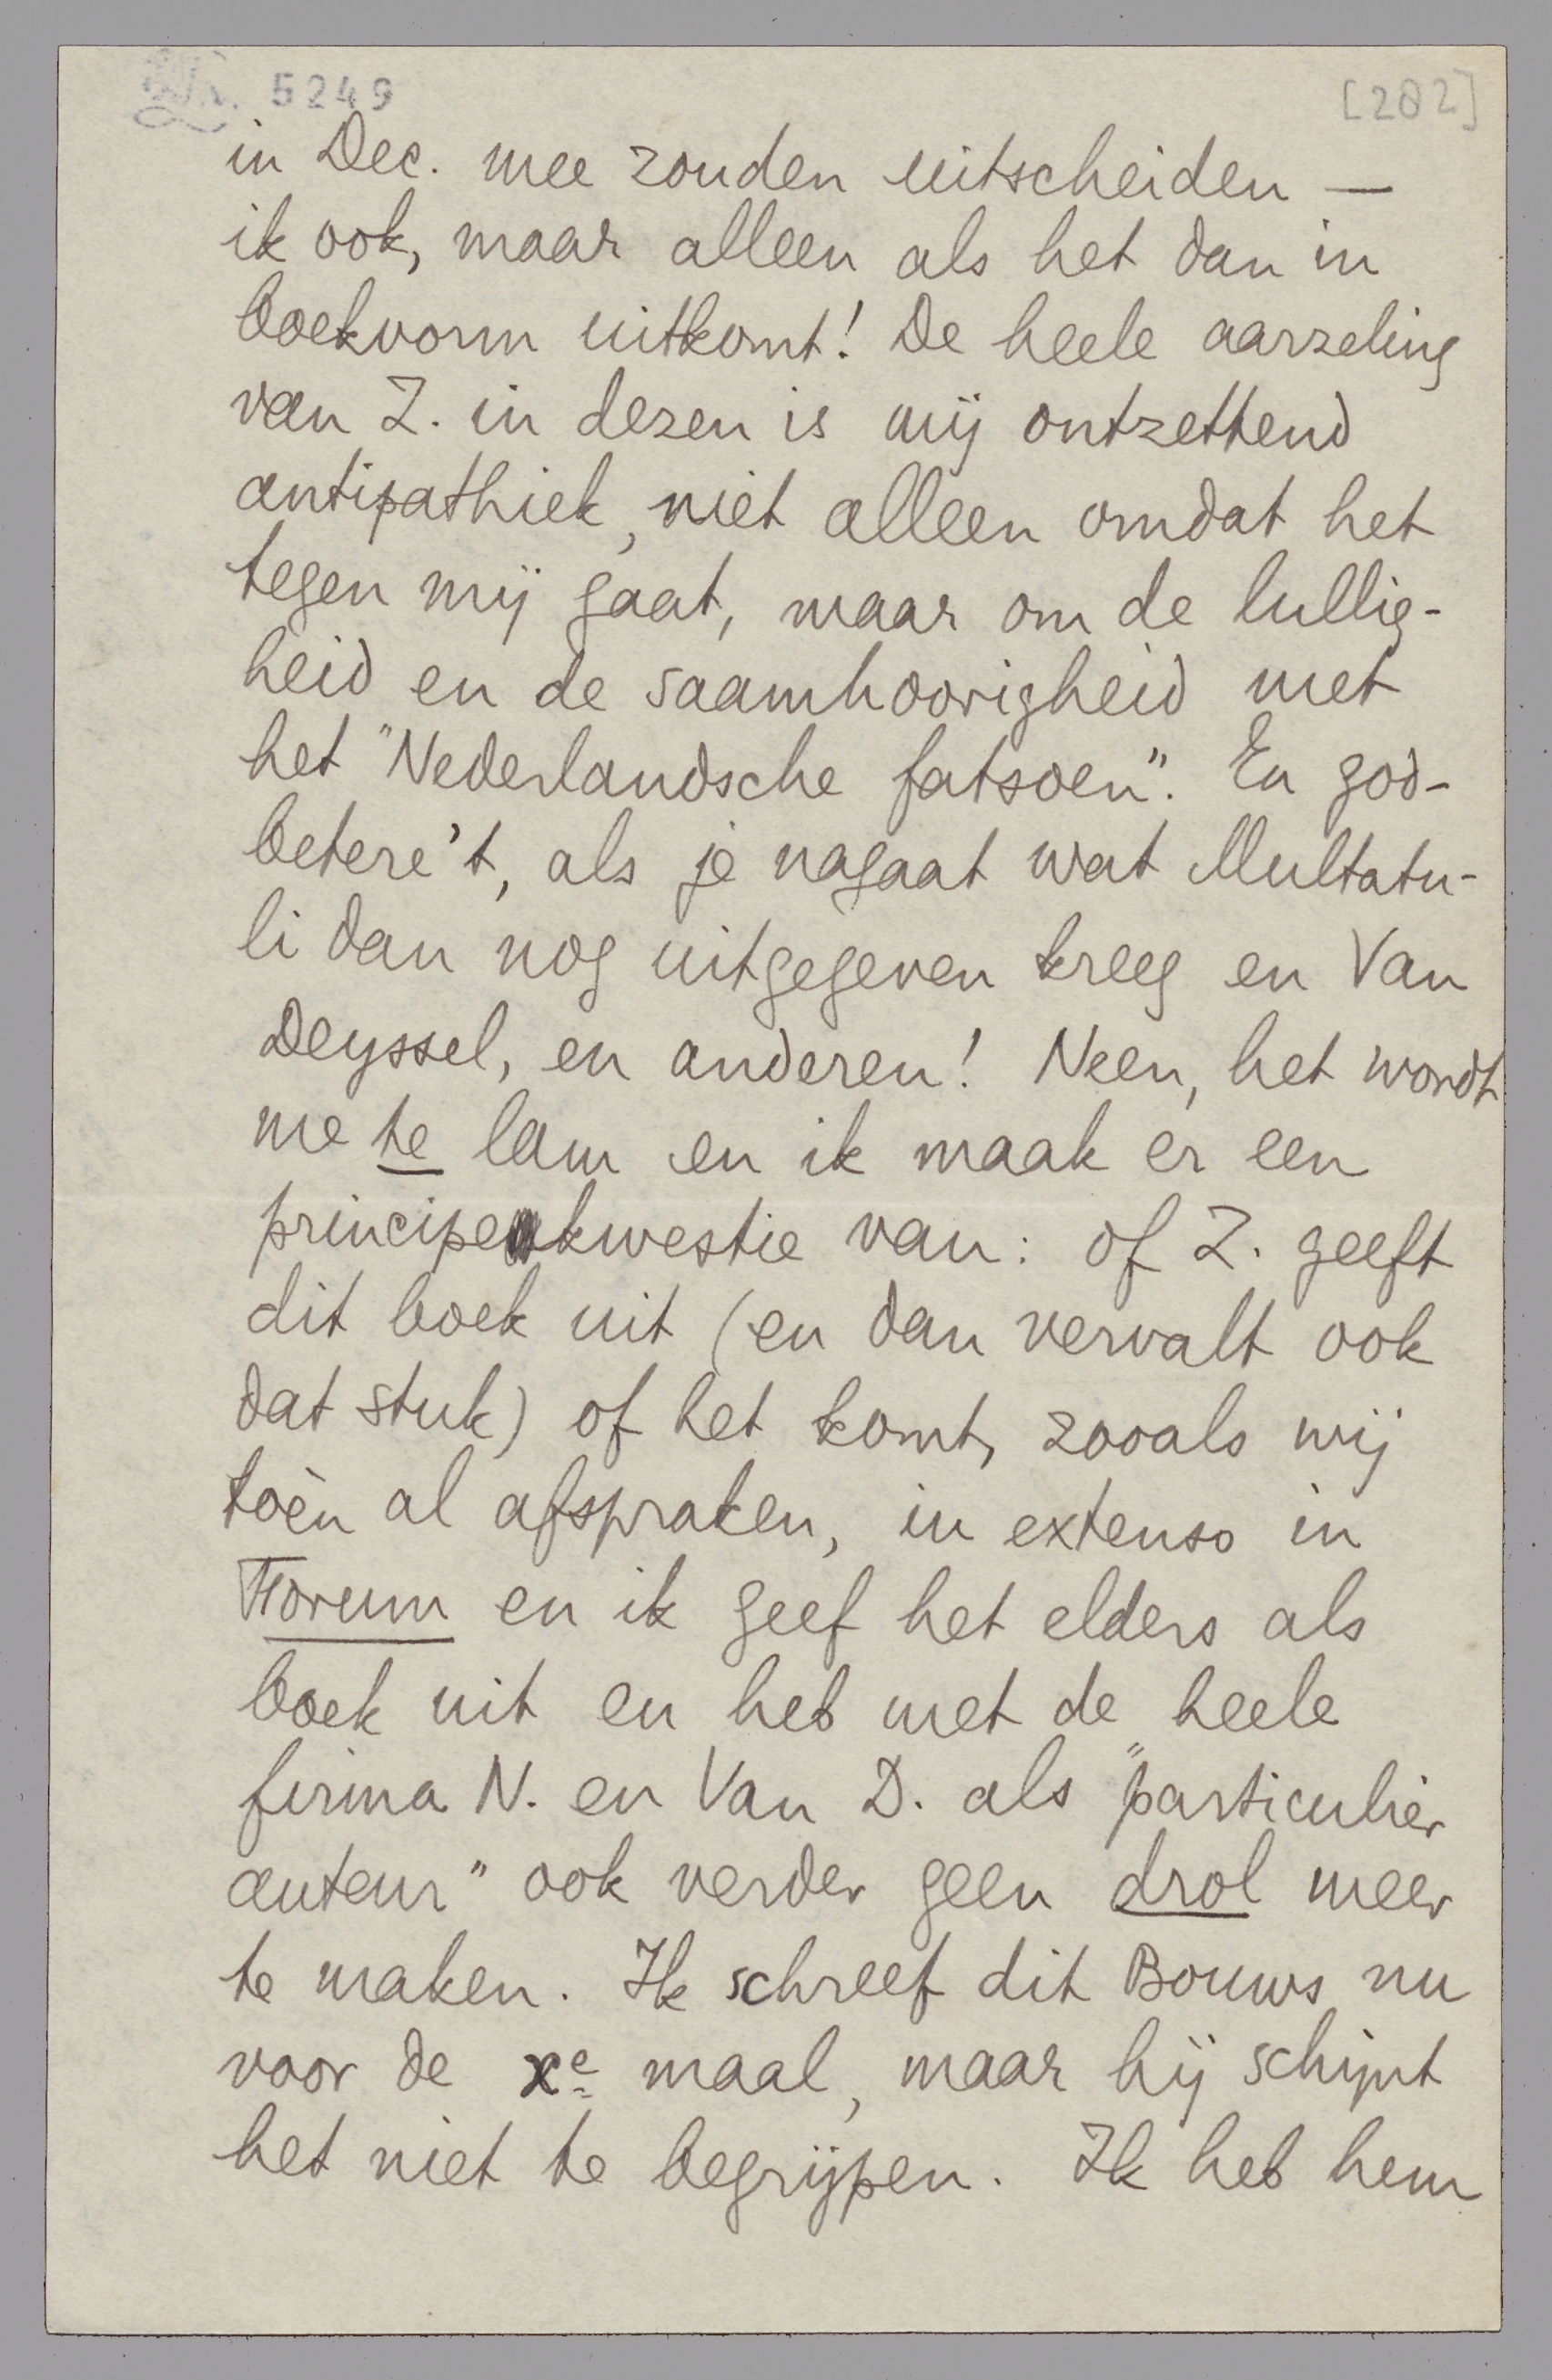 5249
[282]
in Dec. mee zouden uitscheiden —
ik ook, maar alleen als het dan in
boekvorm uitkomt! De heele aarzeling
van Z. in dezen is mij ontzettend
antipathiek, niet alleen omdat het
tegen mij gaat, maar om de lullig-
heid en de saamhoorigheid met
het "Nederlandsche fatsoen". En god-
betere't, als je nagaat wat Multatu-
li dan nog uitgegeven kreeg en Van
Deyssel, en anderen! Neen, het wordt
me te lam en ik maak er een
principekwestie van: of Z. geeft
dit boek uit (en dan vervalt ook
dat stuk) of het komt, zooals wij
toèn al afspraken, in extenso in
Forum en ik geef het elders als
boek uit en heb met de heele
firma N. en Van D. als "particulier
auteur" ook verder geen drol meer
te maken. Ik schreef dit Bouws nu
voor de xe maal, maar hij schijnt
het niet te begrijpen. Ik heb hem